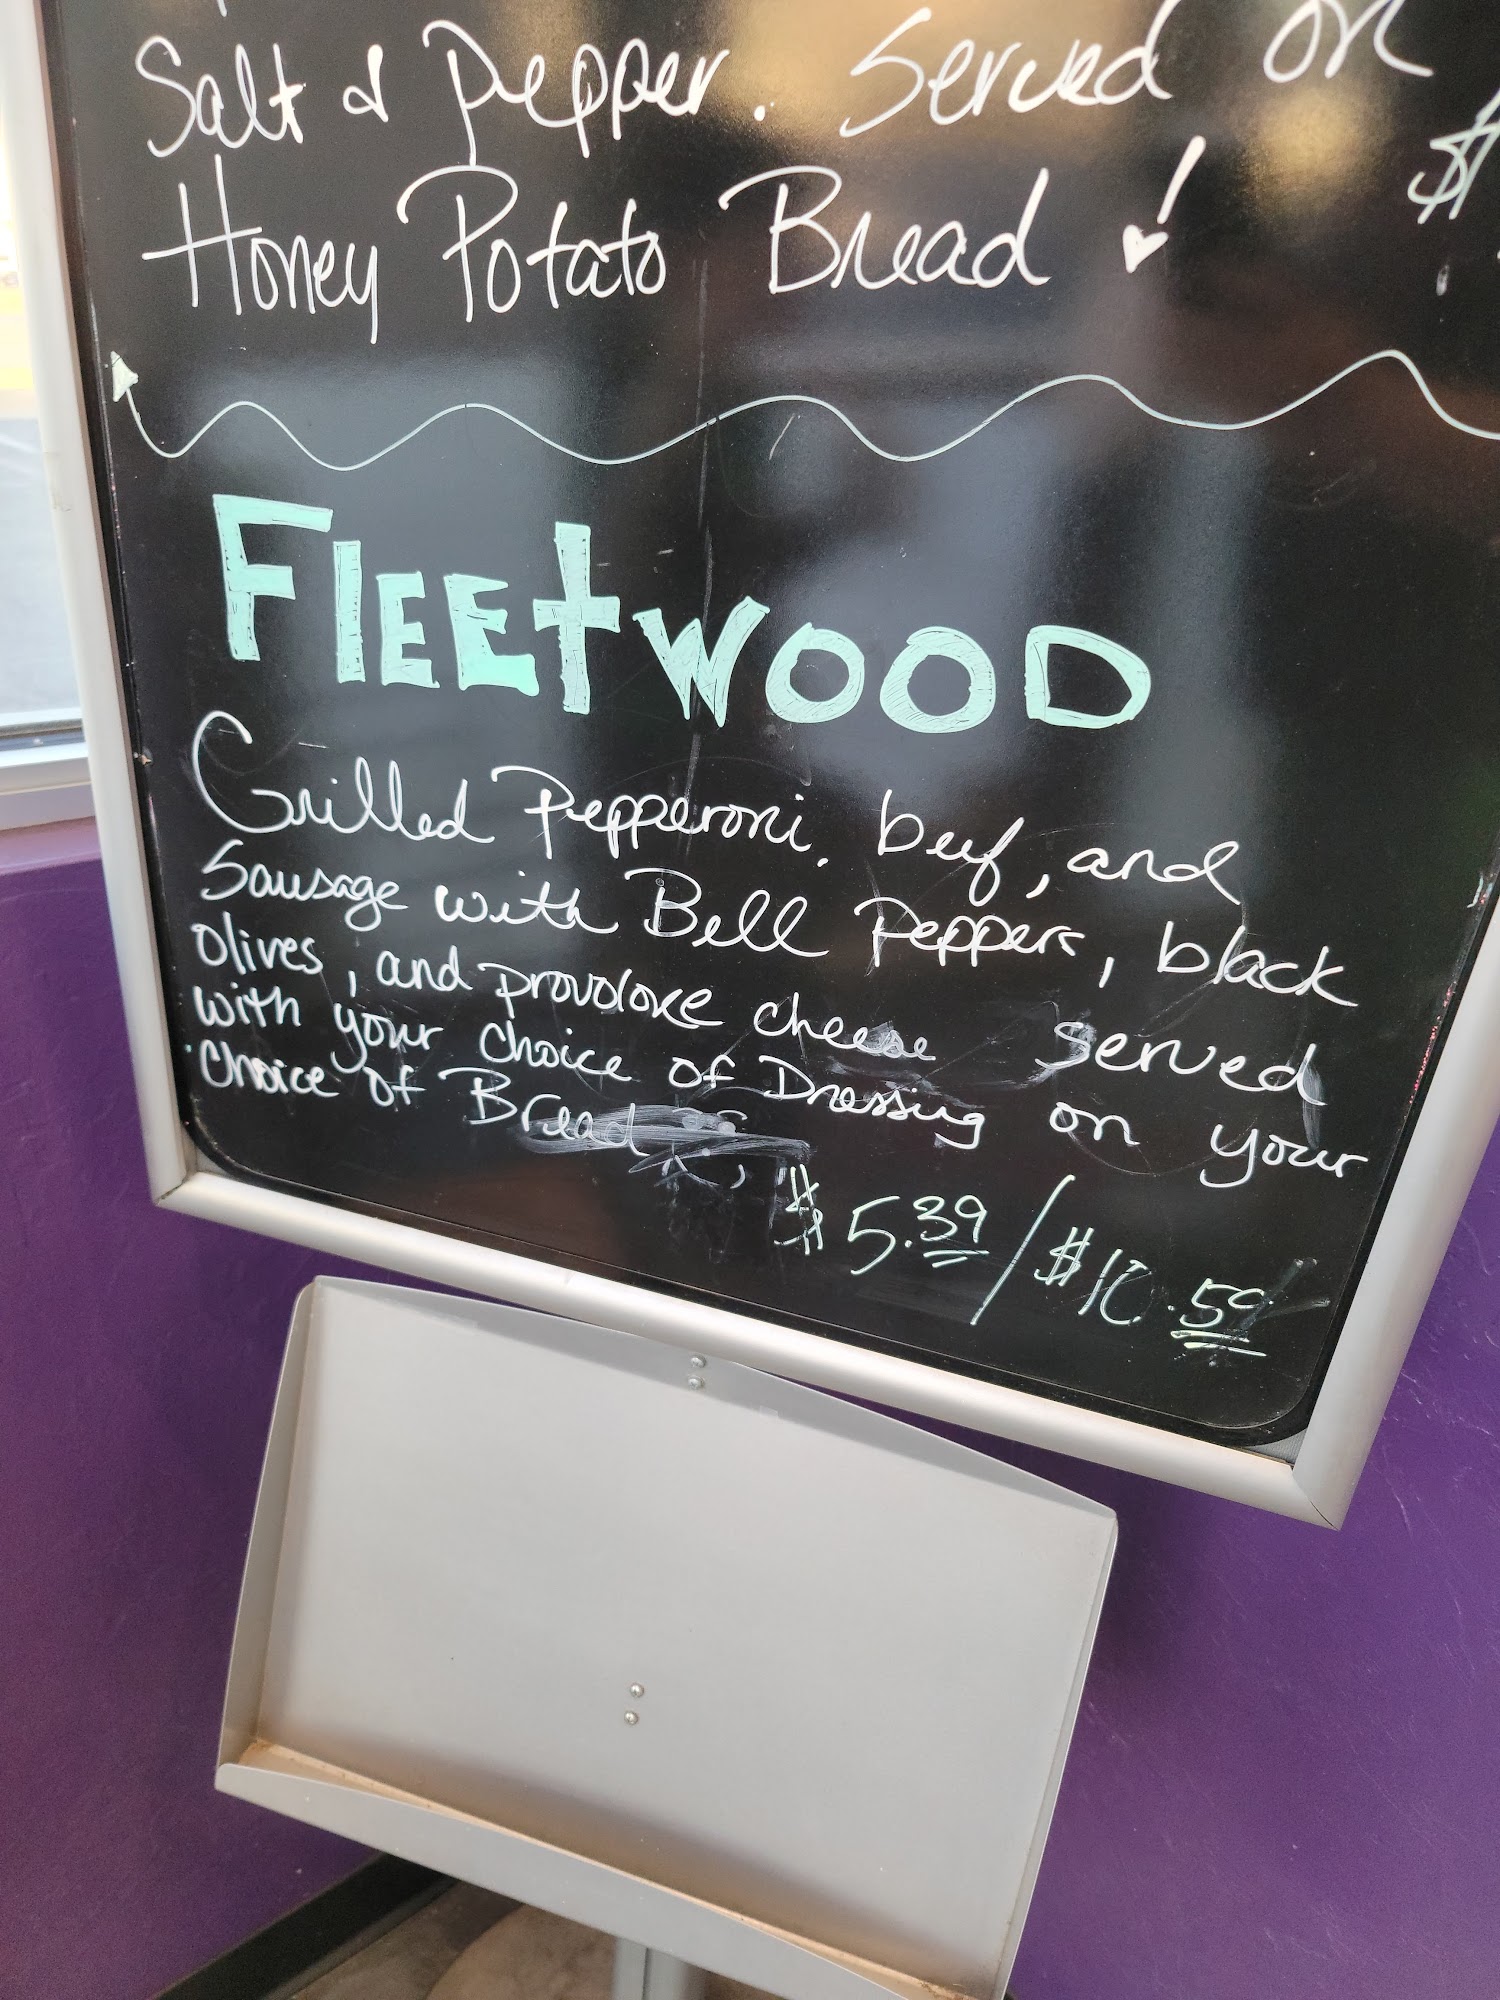 Salt & Pepper. Served on
Honey Potato Bread !
$
FLEEtWOOD
Grilled Pepperoni, beef, and
Sausage with Bell Peppers, black
olives, and provolone cheese served
with your choice of Dressing on your
choice of Bread
$5.39/$10.59